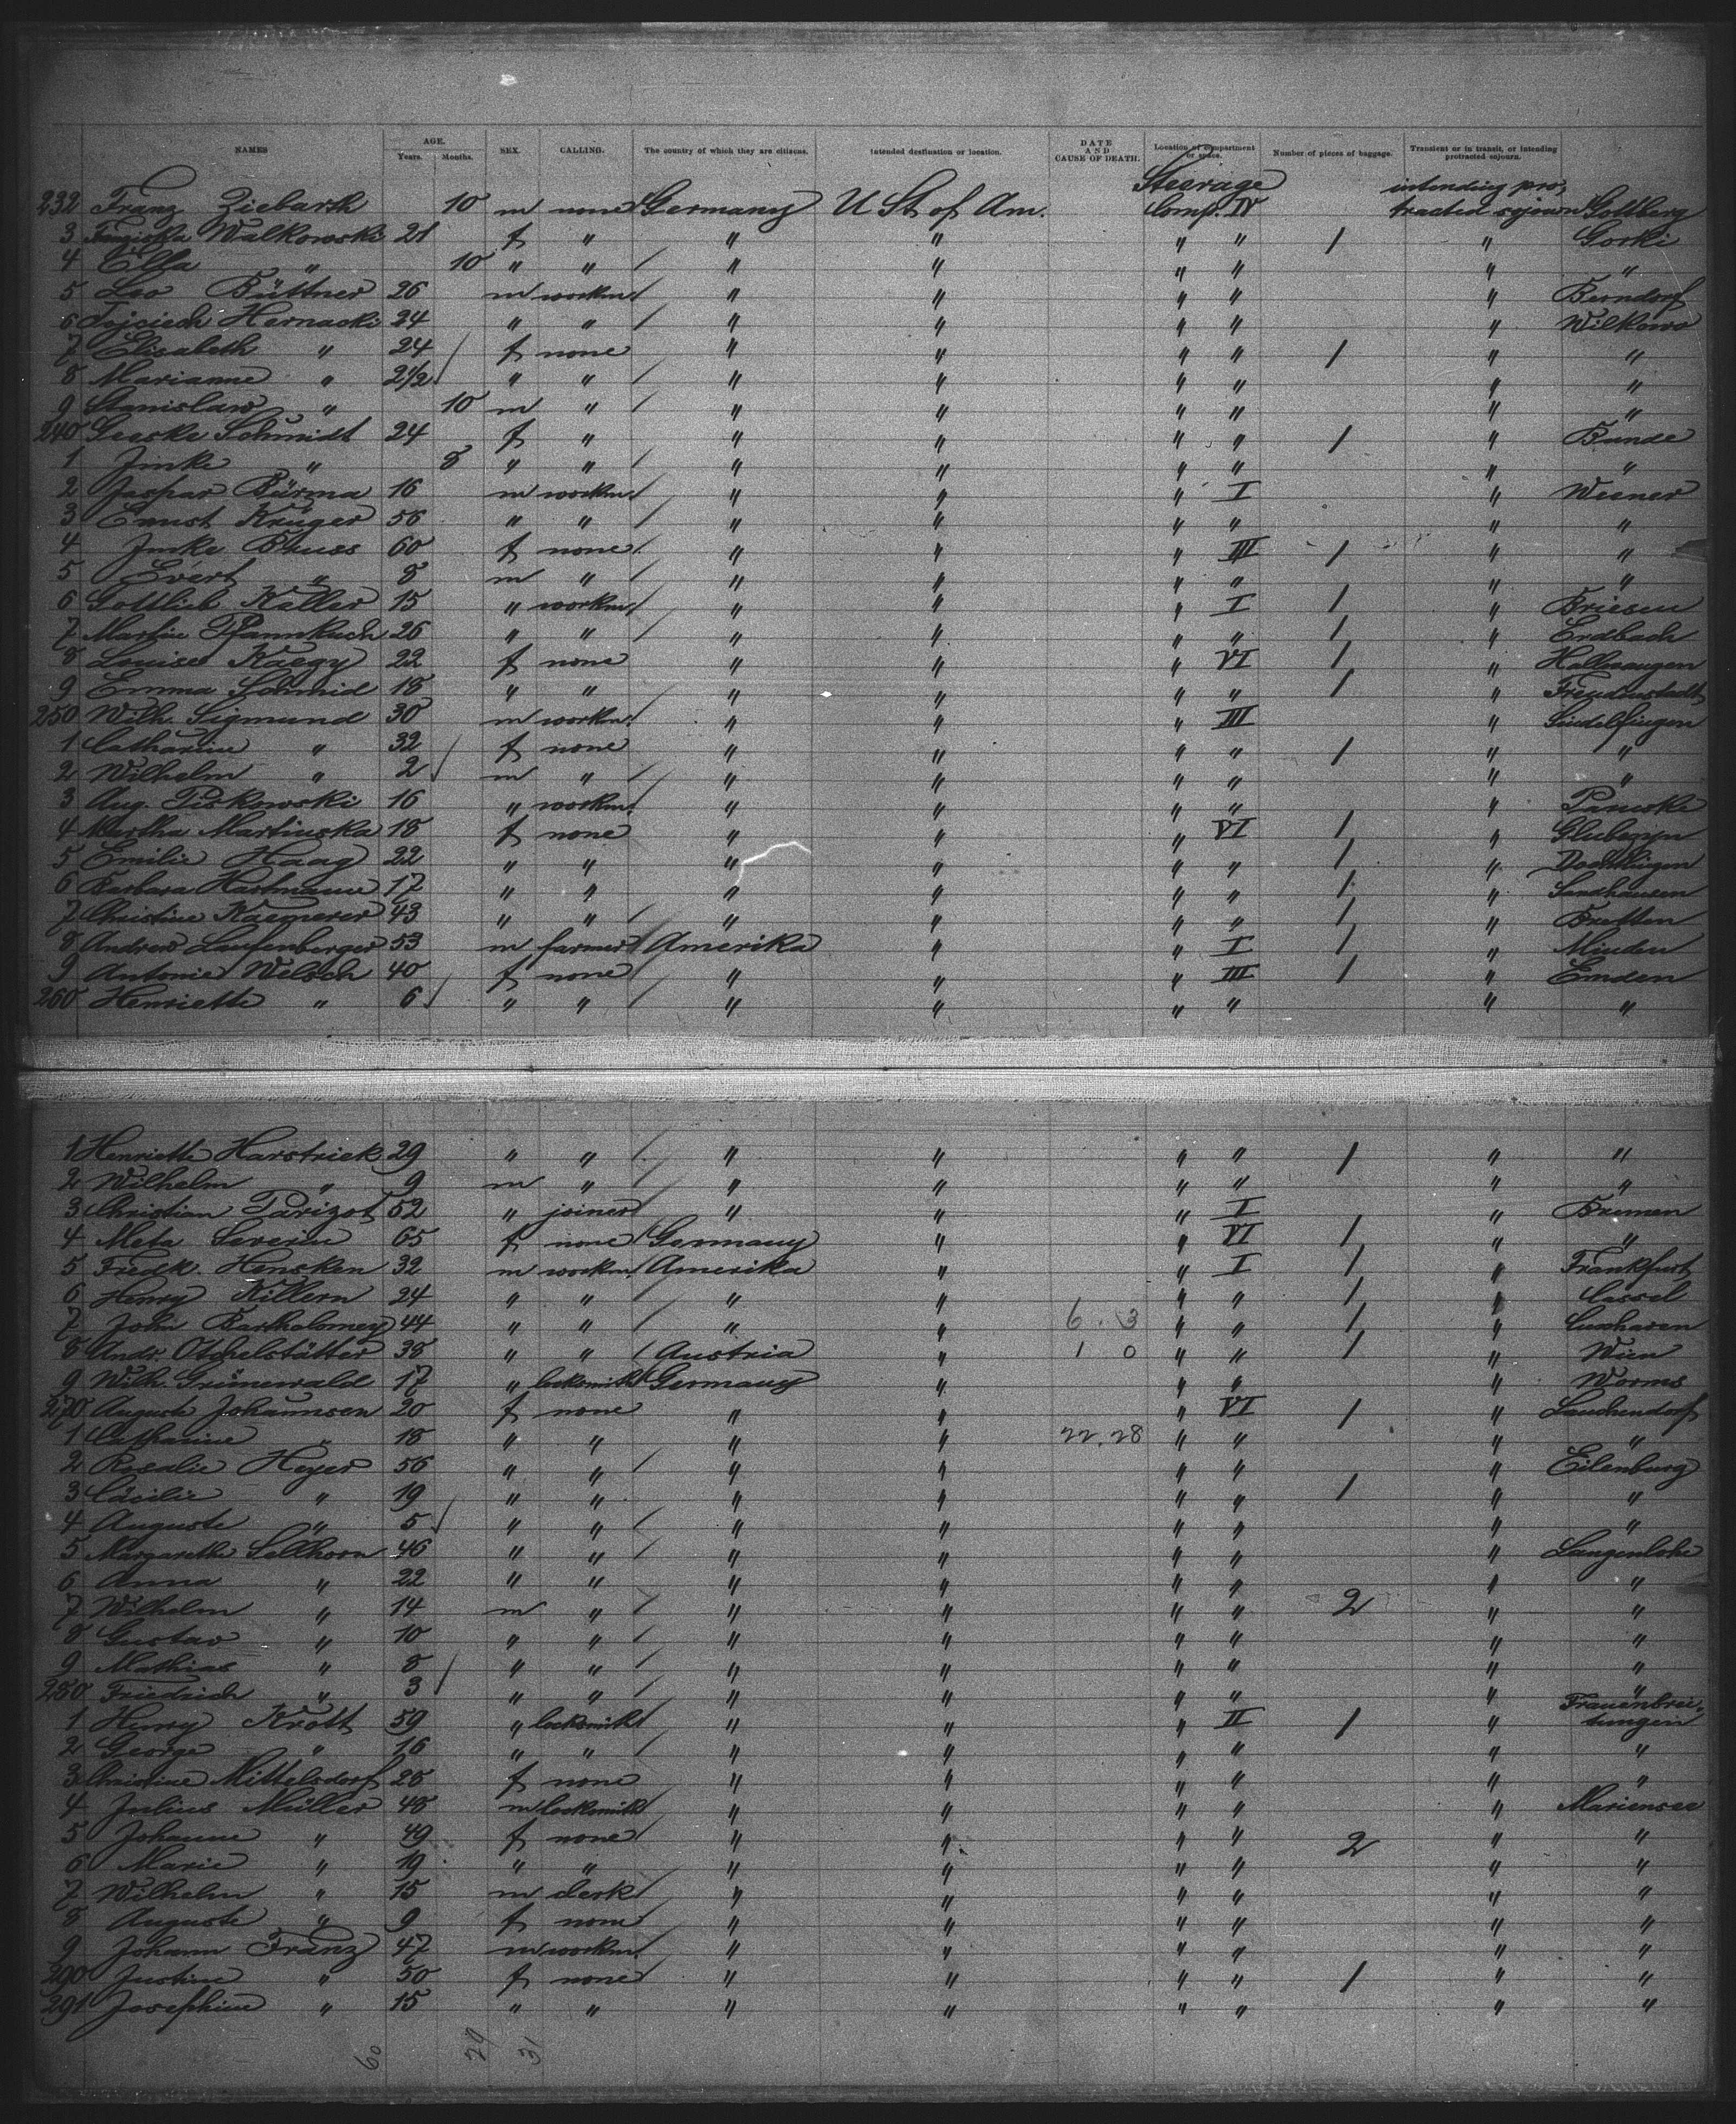 NAMES AGE. Years. Months. SEX. CALLING. The country of which they are citizens. Intended destination or location. DATE AND CAUSE OF DEATH. Location of compartment or space. Number of pieces of baggage. Transient or in transit, or intending protracted sojourn.
Steerage intending pro-
232 Franz Ziebarth 10 m none Germany U St of Am. Comp. IV tracted sojourn Gottberg
3 Walkowski 21 f " " " " " 1 " Gorki
4 Elsa " 10 " " / " " " " " "
5 Leo Büttner 26 m workm. / " " " " " Berndorf
6 Hernacki 24 " " / " " " " " Wilkowo
7 Elisabeth " 24 / f none " " " " 1 " "
8 Marianne " 2½ / " " / " " " " " "
9 Stanislaw " 10 m " / " " " " " "
240 Geeske Schmidt 24 f " " " " " 1 " Bunde
1 Jmke " 8 " " / " " " " " "
2 Jaspar Bürma 16 m workm. / " " " I " Weener
3 Ernst Krüger 56 " " / " " " " " "
4 Jmke Bhuss 60 f none / " " " III 1 " "
5 Evert " 8 m " / " " " " " "
6 Gottlieb Keller 15 " workm. / " " " I 1 " Briesen
7 Martin Pfannkuch 26 " " / " " " " 1 " Erdbach
8 Louise Kaegy 22 f none " " " VI 1 " Hallwangen
9 Emma Schmid 18 " " " " " " 1 " Freudenstadt
250 Wilh. Sigmund 30 m workm. " " " III " Sindelfingen
1 Catharine " 32 / f none " " " " 1 " "
2 Wilhelm " 2 / m " / " " " " " "
3 Aug. Piskowski 16 " workm. / " " " " "
4 Martha Martinska 18 f none " " " VI 1 "
5 Emilie Haag 22 " " " " " " 1 "
6 Barbara Hartmann 17 " " " " " " 1 " Sandhausen
7 Christine Kaemerer 43 " " / " " " " 1 " Bretten
8 Andrew Laufenberger 53 m farmer / Amerika " " I 1 " Minden
9 Antonie Welsch 40 f none / " " " III 1 " Emden
260 Henriette " 6 / " " / " " " " " "
1 Henriette Harstrick 29 " " / " " " " 1 " "
2 Wilhelm " 9 m " / " " " " " "
3 Christian Parizot 52 " joiner " " " I " Bremen
4 Meta Severin 65 f none / Germany " " VI 1 " "
5 Fredk. Hensken 32 m workm. / Amerika " " I 1 " Frankfurt
6 Henry Killern 24 " " / " " " " 1 " Cassel
7 John Bartholomey 44 " " / " " 6 . 3 " " 1 " Cuxhaven
8 Andr. Otchelstätter 38 " " / Austria " 1 0 " " 1 " Wien
9 Wilh. Grünewald 17 " locksmith Germany " " " " Worms
270 Auguste Johannsen 20 f none " " " VI 1 "
1 Catharine " 18 " " " " 22.28 " " " "
2 Rosalie Heyer 56 " " / " " " " " Eilenburg
3 Cäcilie " 19 " " " " " " 1 " "
4 Auguste " 5 / " " / " " " " " "
5 Margarethe Sellhorn 46 " " / " " " " " Langenlohe
6 Anna " 22 " " " " " " " "
7 Wilhelm " 14 m " / " " " " 2 " "
8 Gustav " 10 " " / " " " " " "
9 Mathias " 8 / " " / " " " " " "
280 Friedrich " 3 / " " / " " " " " "
1 Henry Krott 59 " locksmith " " " II 1 " Frauenbrei-
tungen
2 George " 16 " " / " " " " " "
3 Christine Mittelsdorf 28 f none " " " " " "
4 Julius Müller 48 m locksmith " " " " " Mariensee
5 Johanne " 49 f none / " " " " 2 " "
6 Marie " 19 " " " " " " " "
7 Wilhelm " 15 m clerk " " " " " "
8 Auguste " 9 f none " " " " " "
9 Johann Franz 47 m workm. " " " " " "
290 Justine " 50 f none " " " " 1 " "
291 Josephine " 15 " " " " " " " "
60 29 31